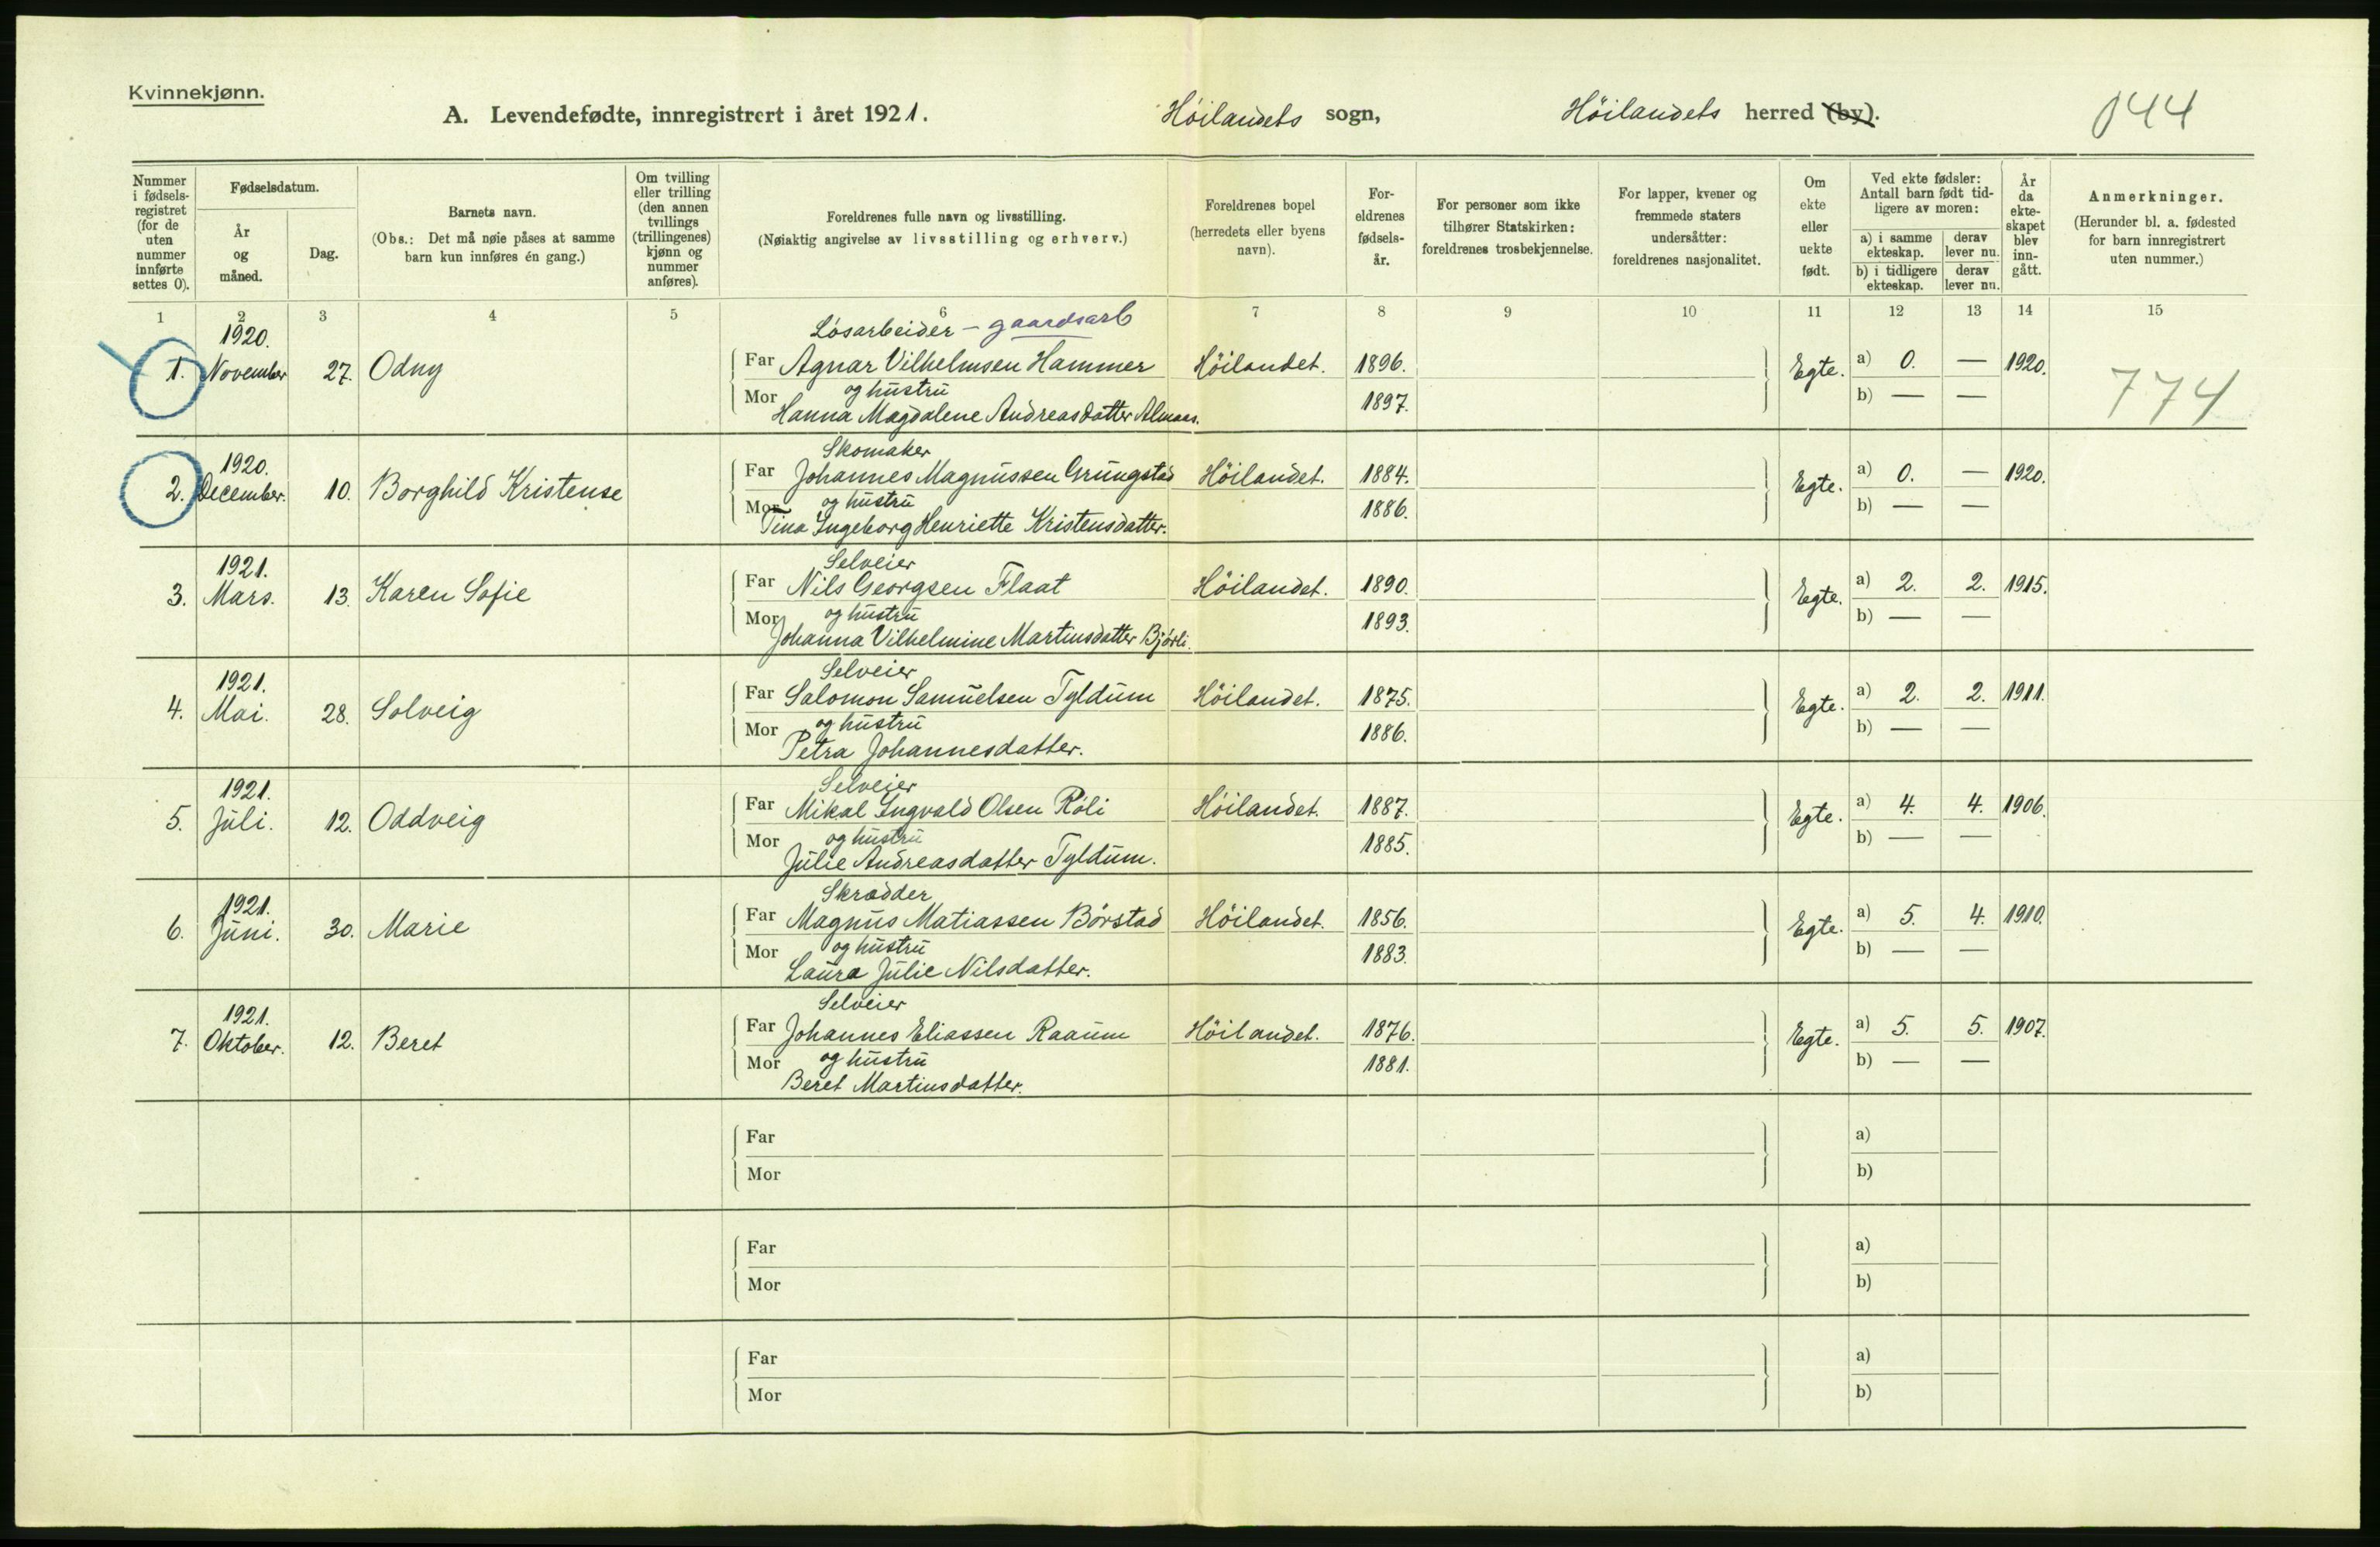 Kvinnekjønn.
A. Levendefødte, innregistrert i året 1921. Höilandets sogn, Höilandets herred (by). 044
Nummer i fødselsregistret (for de uten nummer innførte settes 0).
Fødselsdatum.
År og måned.
Dag.
Barnets navn.
(Obs.: Det må nøie påses at samme barn kun innføres én gang.)
Om tvilling eller trilling (den annen tvillings (trillingenes) kjønn og nummer anføres).
Foreldrenes fulle navn og livsstilling.
(Nøiaktig angivelse av livsstilling og erhverv.)
Foreldrenes bopel (herredets eller byens navn).
Foreldrenes fødselsår.
For personer som ikke tilhører Statskirken: foreldrenes trosbekjennelse.
For lapper, kvener og fremmede staters undersåtter: foreldrenes nasjonalitet.
Om ekte eller uekte født.
Ved ekte fødsler: Antall barn født tidligere av moren:
a) i samme ekteskap. derav lever nu.
b) i tidligere ekteskap. derav lever nu.
År da ekteskapet blev inngått.
Anmerkninger.
(Herunder bl. a. fødested for barn innregistrert uten nummer.)
1 2 3 4 5 6 7 8 9 10 11 12 13 14 15
1920. Løsarbeider – gaardsarb
1. November 27. Odny Far Agnar Vilhelmsen Hammer Höilandet. 1896. Egte. a) 0. — 1920.
Mor og hustru 1897. b) — — 774
Hanna Magdalene Andreasdatter Almaas.
1920. Skomaker
2. December. 10. Borghild Kristense Far Johannes Magnussen Grungstad Höilandet. 1884. Egte. a) 0. — 1920.
Mor og hustru 1886. b) — —
Tina Ingeborg Henriette Kristensdatter.
1921. Selveier
3. Mars. 13. Karen Sofie Far Nils Georgsen Flaat Höilandet. 1890. Egte. a) 2. 2. 1915.
Mor og hustru 1893. b) — —
Johanna Vilhelmine Martinsdatter Bjørli.
1921. Selveier
4. Mai. 28. Solveig Far Salomon Samuelsen Tyldum Höilandet. 1875. Egte. a) 2. 2. 1911.
Mor og hustru 1886. b) — —
Petra Johannesdatter.
1921. Selveier
5. Juli. 12. Oddveig Far Mikal Ingvald Olsen Röli Höilandet. 1887. Egte. a) 4. 4. 1906.
Mor og hustru 1885. b) — —
Julie Andreasdatter Tyldum.
1921. Skrædder
6. Juni. 30. Marie Far Magnus Matiassen Børstad Höilandet. 1856. Egte. a) 5. 4. 1910.
Mor og hustru 1883. b) — —
Laura Julie Nilsdatter.
1921. Selveier
7. Oktober. 12. Beret Far Johannes Eliassen Raaum Höilandet. 1876. Egte. a) 5. 5. 1907.
Mor og hustru 1881. b) — —
Beret Martinsdatter.
Far a)
Mor b)
Far a)
Mor b)
Far a)
Mor b)